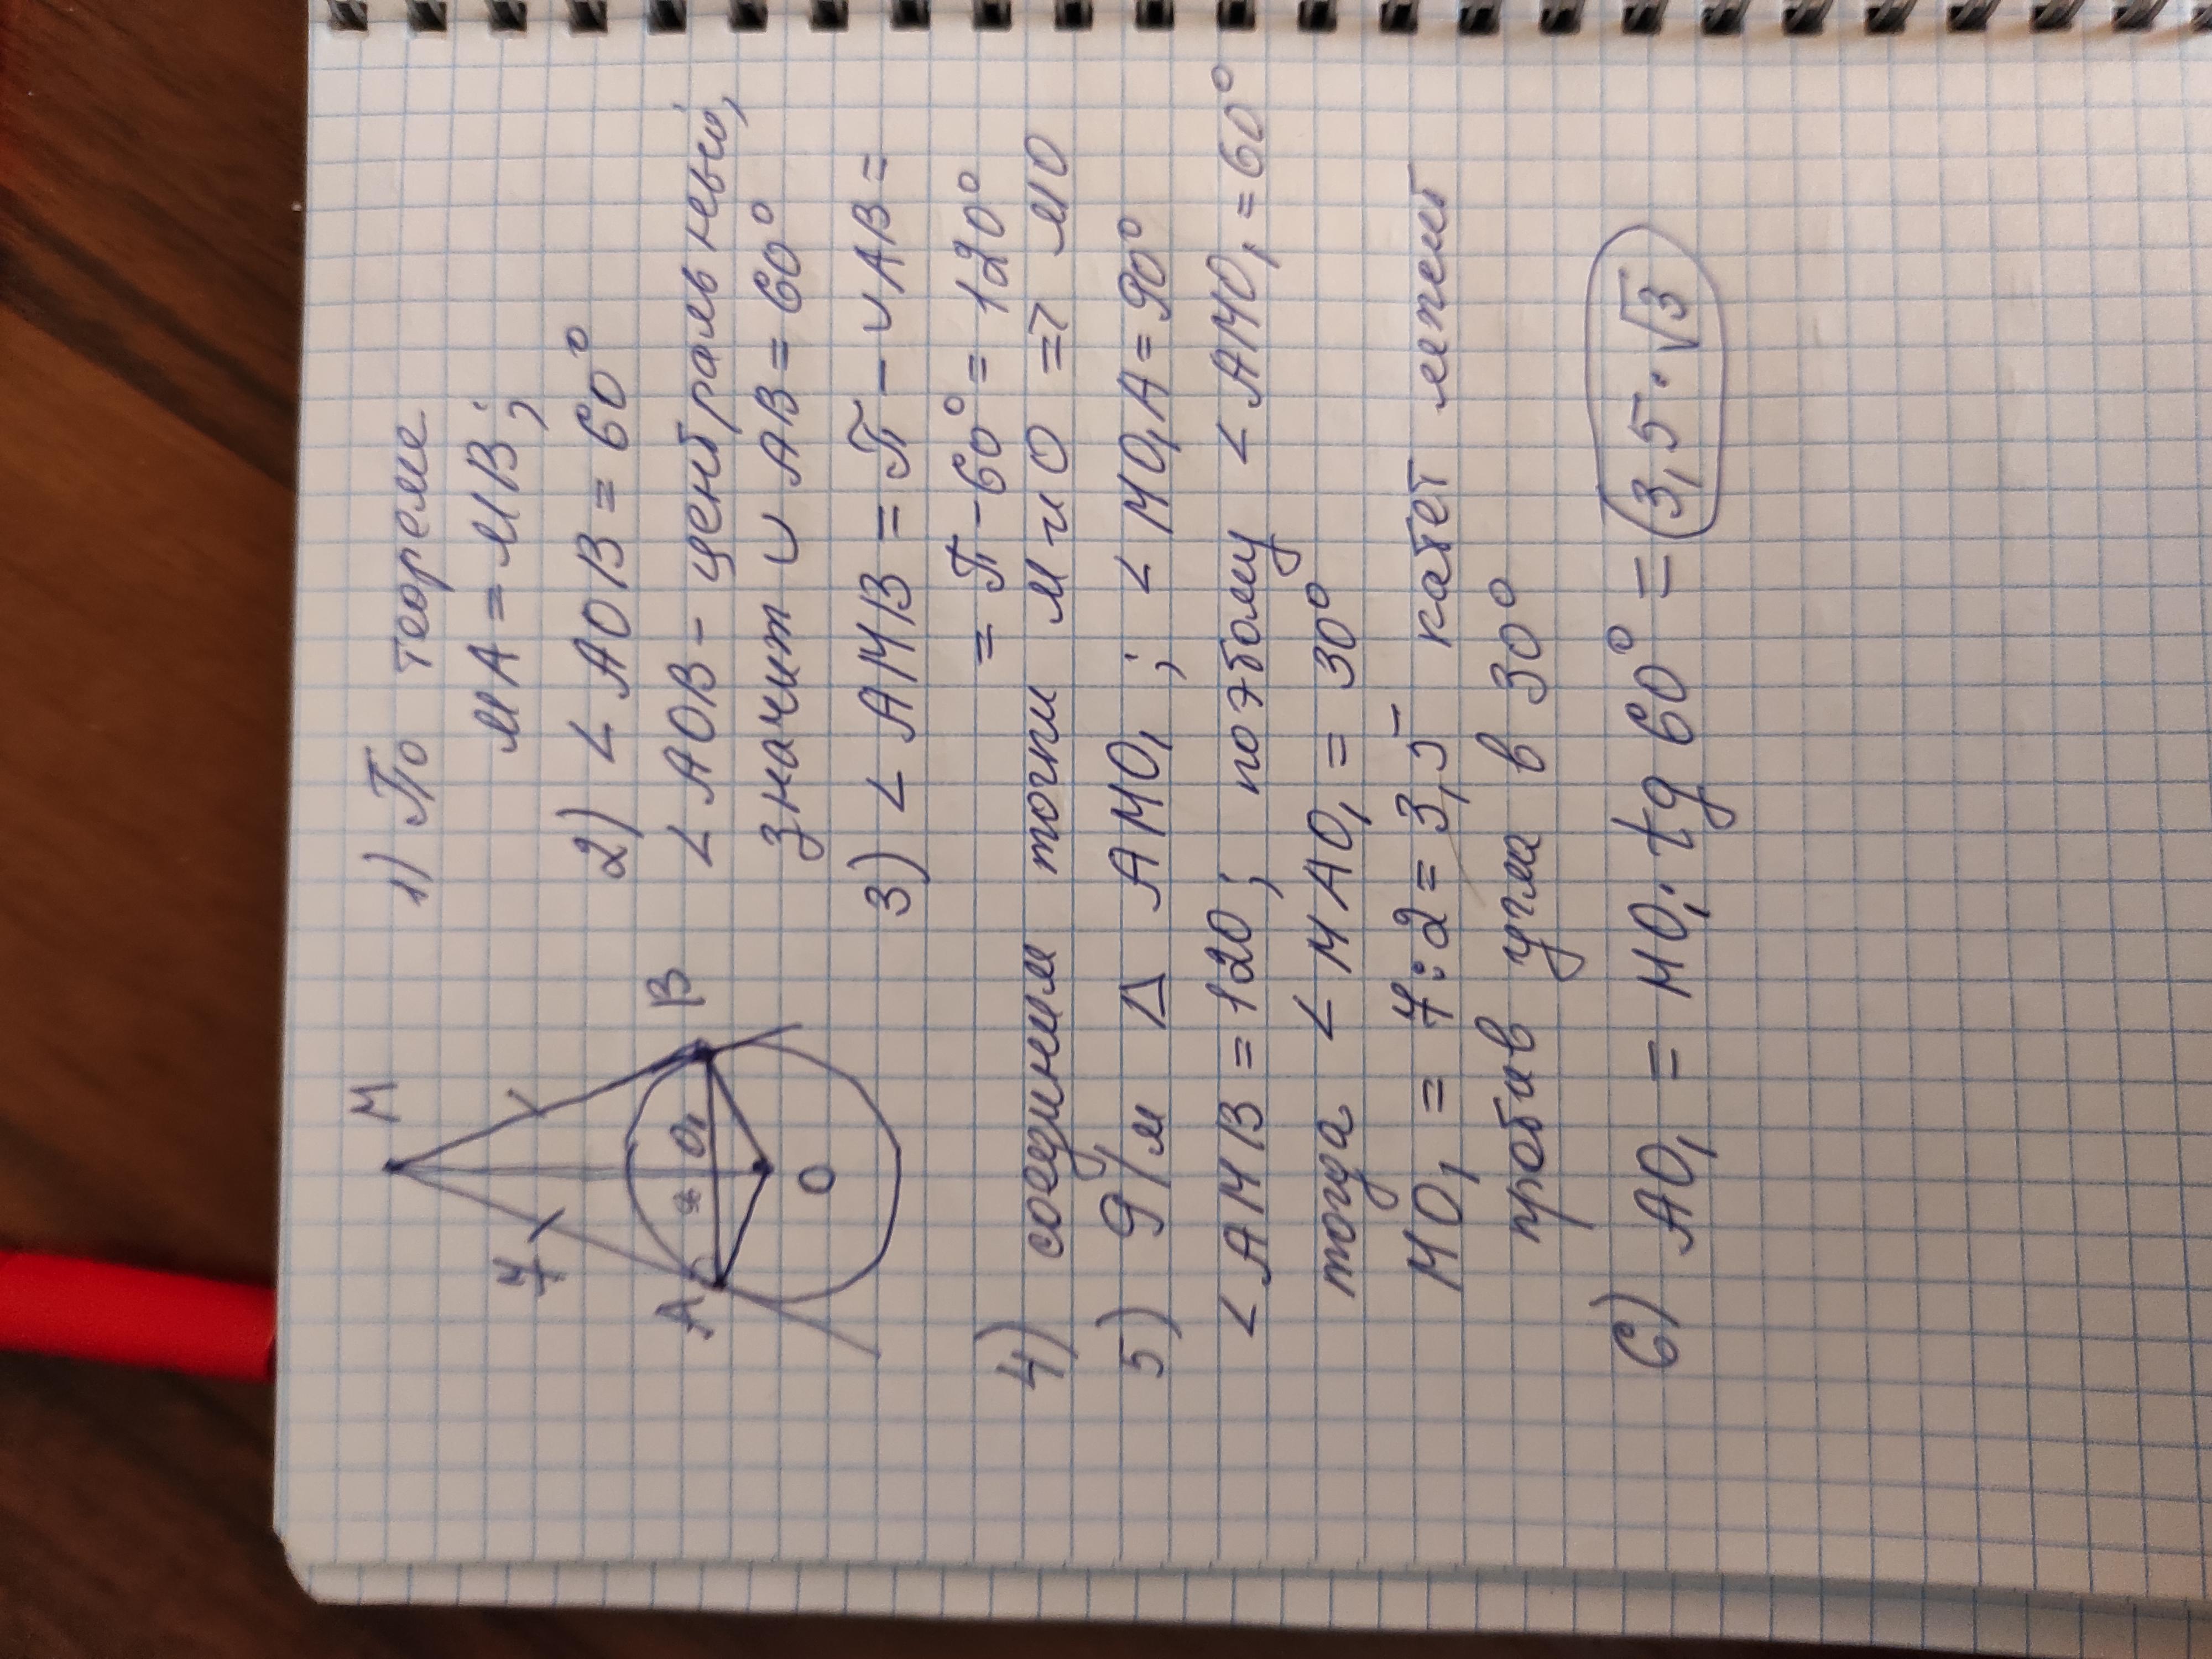 M
7
A
B
x
O₁
O
1) По теореме
MA = MB;
2) ∠ AOB = 60°
∠ AOB - центральный,
значит ∪ AB = 60°
3) ∠ AMB = П - ∪AB =
= П - 60° = 120°
4) соединим точки M и O => MO
5) Р/м Δ AMO₁; ∠ MO₁A = 90°
∠ AMB = 120; поэтому ∠ AMO₁ = 60°
тогда ∠ MAO₁ = 30°
MO₁ = 7:2 = 3,5 катет лежит
против угла в 30°
6) AO₁ = MO₁ · tg 60° = 3,5 · √3